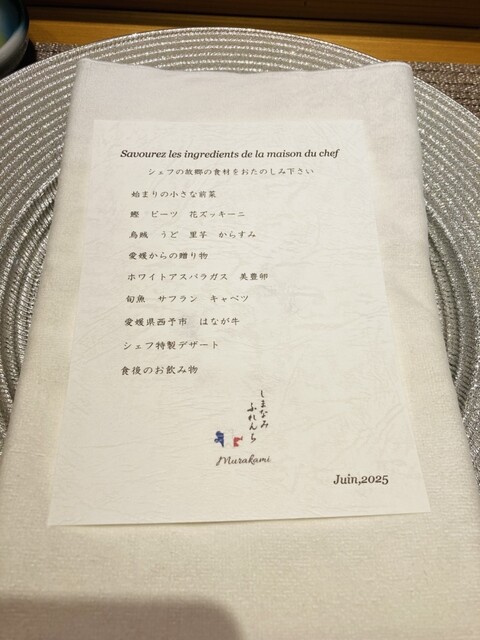 Savourez les ingredients de la maison du chef
シェフの故郷の食材をおたのしみ下さい
始まりの小さな前菜
鰹　ビーツ　花ズッキーニ
烏賊　うど　里芋　からすみ
愛媛からの贈り物
ホワイトアスパラガス　美豊卵
旬魚　サフラン　キャベツ
愛媛県西予市　はなが牛
シェフ特製デザート
食後のお飲み物
しまなみ
ふれんち
Murakami
Juin,2025